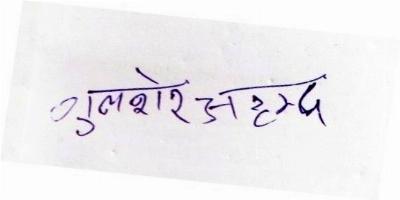 गुलशेर अहमद